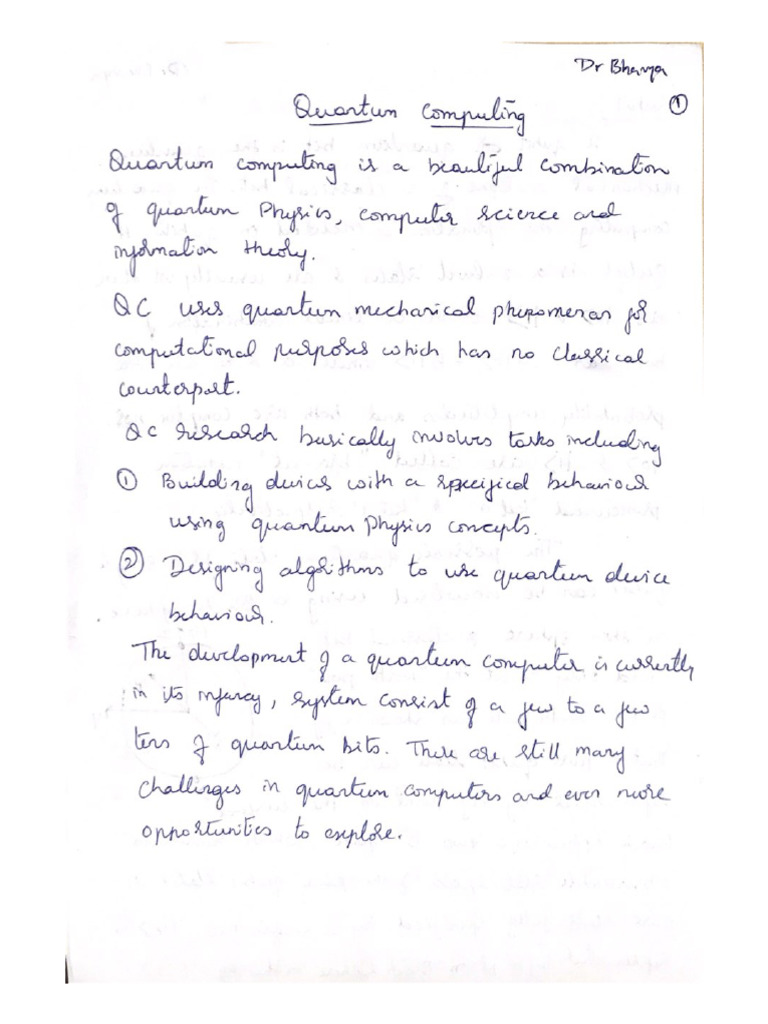 Dr Bhavya
①
Quantum Computing
Quantum computing is a beautiful combination
of quantum Physics, computer science and
information theory.
QC uses quantum mechanical phenomenan for
computational purposes which has no classical
counterpart.
QC research basically involves tasks including
① Building devices with a specified behaviour
using quantum Physics concepts.
② Designing algorithms to use quantum device
behaviour.
The development of a quantum computer is currently
in its infancy, system consist of a few to a few
tens of quantum bits. There are still many
challenges in quantum computers and even more
opportunities to explore.